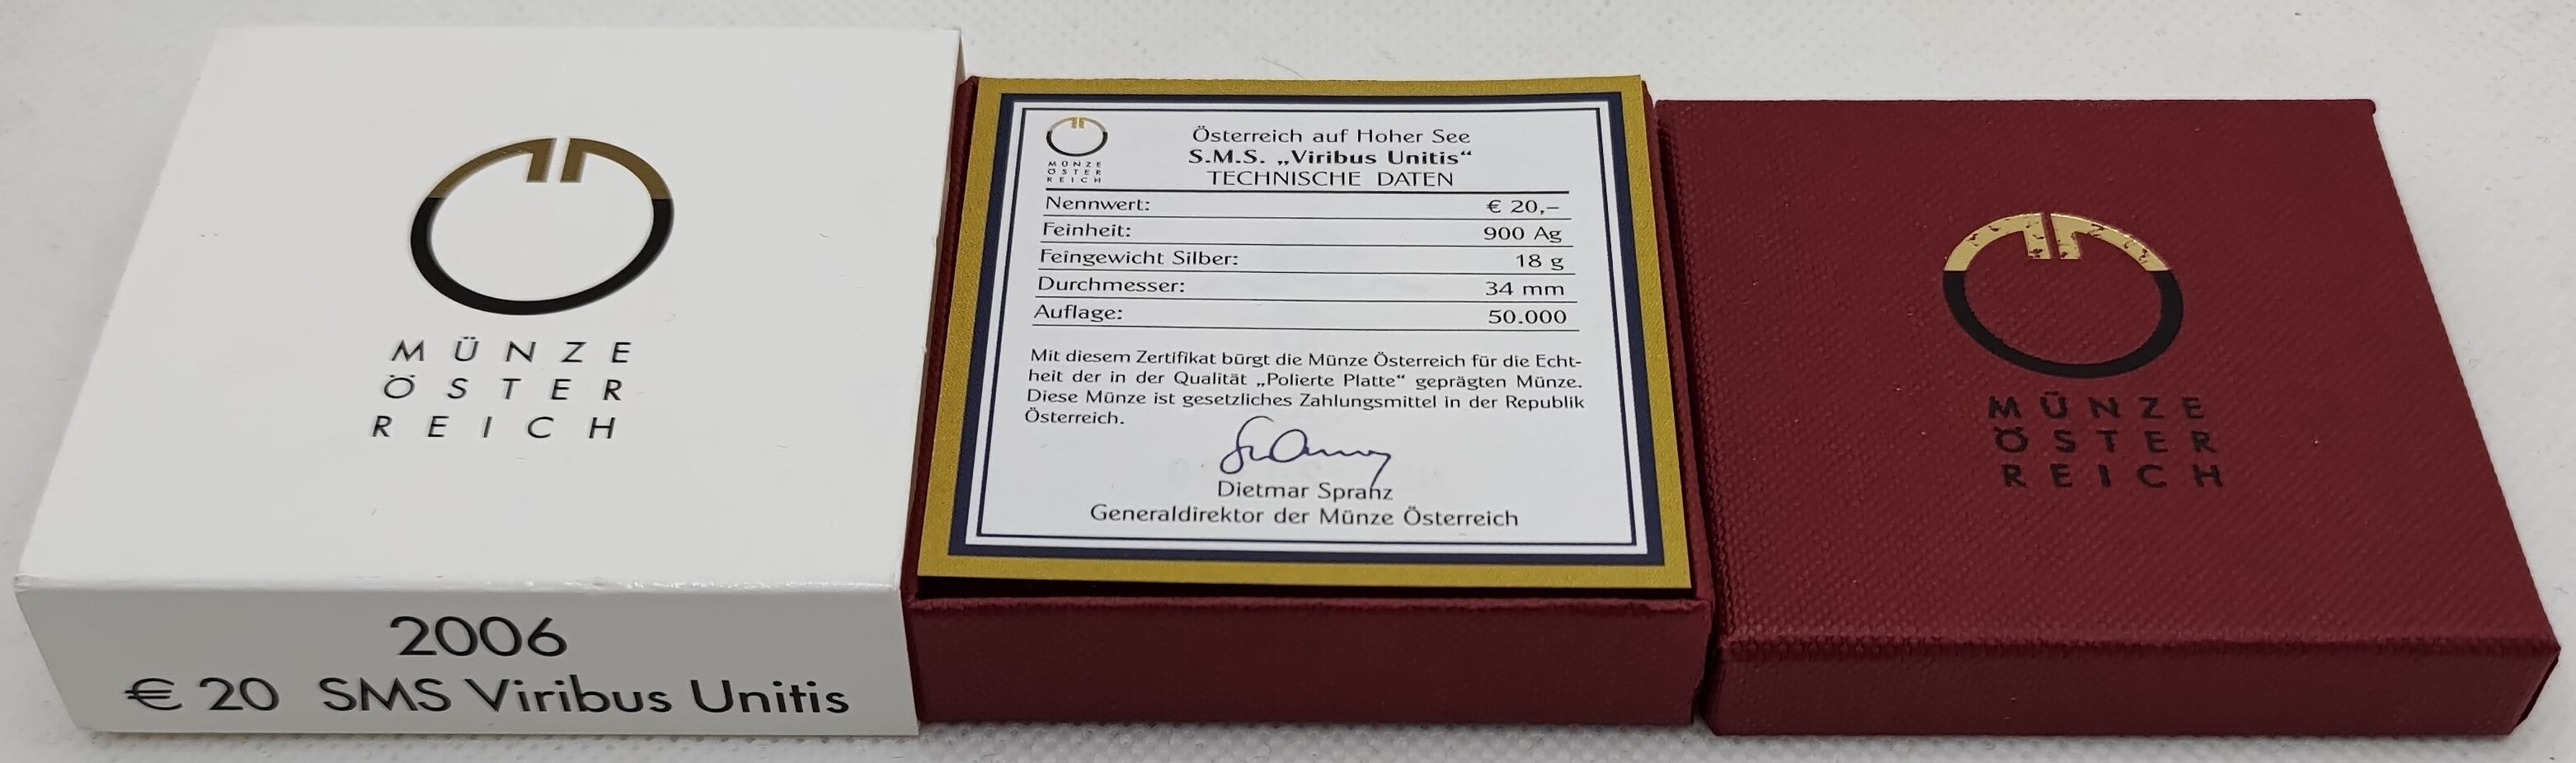 MÜNZE
ÖSTER
REICH
2006
€ 20 SMS Viribus Unitis
MÜNZE
ÖSTER
REICH
Österreich auf Hoher See
S.M.S. „Viribus Unitis“
TECHNISCHE DATEN
Nennwert: € 20,–
Feinheit: 900 Ag
Feingewicht Silber: 18 g
Durchmesser: 34 mm
Auflage: 50.000
Mit diesem Zertifikat bürgt die Münze Österreich für die Echt-
heit der in der Qualität „Polierte Platte“ geprägten Münze.
Diese Münze ist gesetzliches Zahlungsmittel in der Republik
Österreich.
Dietmar Spranz
Generaldirektor der Münze Österreich
MÜNZE
ÖSTER
REICH